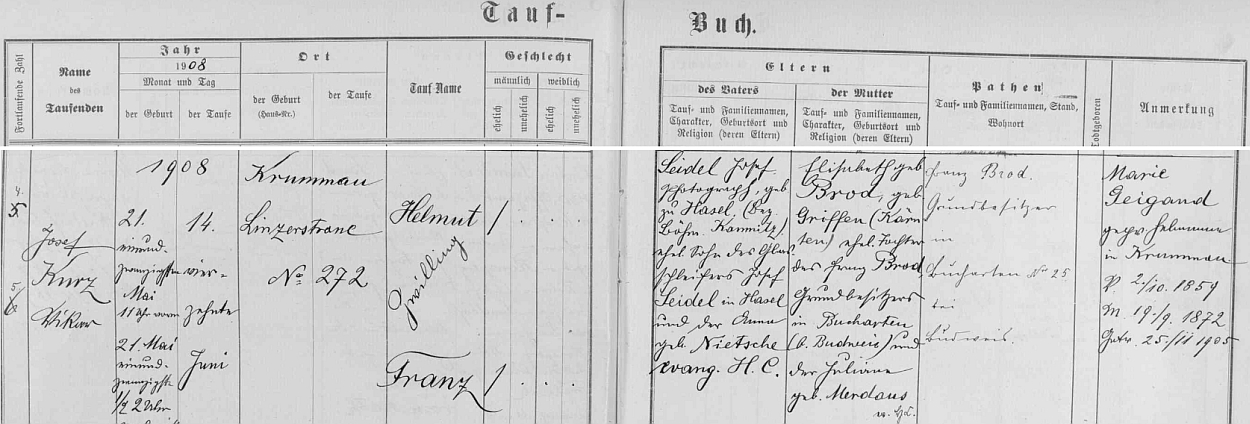 Tauf-
Buch.
Fortlaufende Zahl
Name
des
Taufenden
Jahr
1908
Monat und Tag
der Geburt
der Taufe
Ort
der Geburt
(Haus-Nr.)
der Taufe
Tauf-Name
Geschlecht
männlich
weiblich
ehelich
unehelich
ehelich
unehelich
Eltern
des Vaters
Tauf- und Familiennamen,
Charakter, Geburtsort und
Religion (deren Eltern)
der Mutter
Tauf- und Familiennamen,
Charakter, Geburtsort und
Religion (deren Eltern)
Pathen
Tauf- und Familiennamen, Stand,
Wohnort
Todtgeboren
Anmerkung
4.
5
5/6
Josef
Kurz
Vikar
1908
21.
einund-
zwanzigsten
Mai
11 Uhr vorm
21. Mai
einund-
zwanzigste
1/2 2 Uhr
14.
vier-
zehnte
Juni
Krummau
Linzerstrane
No 272
Helmut /
Zwilling
Franz /
Seidel Josef
Photograph, geb
zu Hasel, (Bez.
Böhm. Kamnitz)
ehel. Sohn des Glas
schleifers Josef
Seidel in Hasel
und der Anna
geb. Nietsche
evang. H. C.
Elisabeth geb
Brod, geb
Griffen (Kärn
ten) ehel. Tochter
des Franz Brod
Grundbesitzers
in Bucharten
(b. Budweis) und
der Juliane
geb. Merdaus
Franz Brod.
Grundbesitzer
in
Bucharten No 25
bei
Budweis.
Marie
Geigand
gepr. Hebamme
in Krummau
P. 2./10. 1859
M. 19./9. 1872
Getr. 25./II 1905